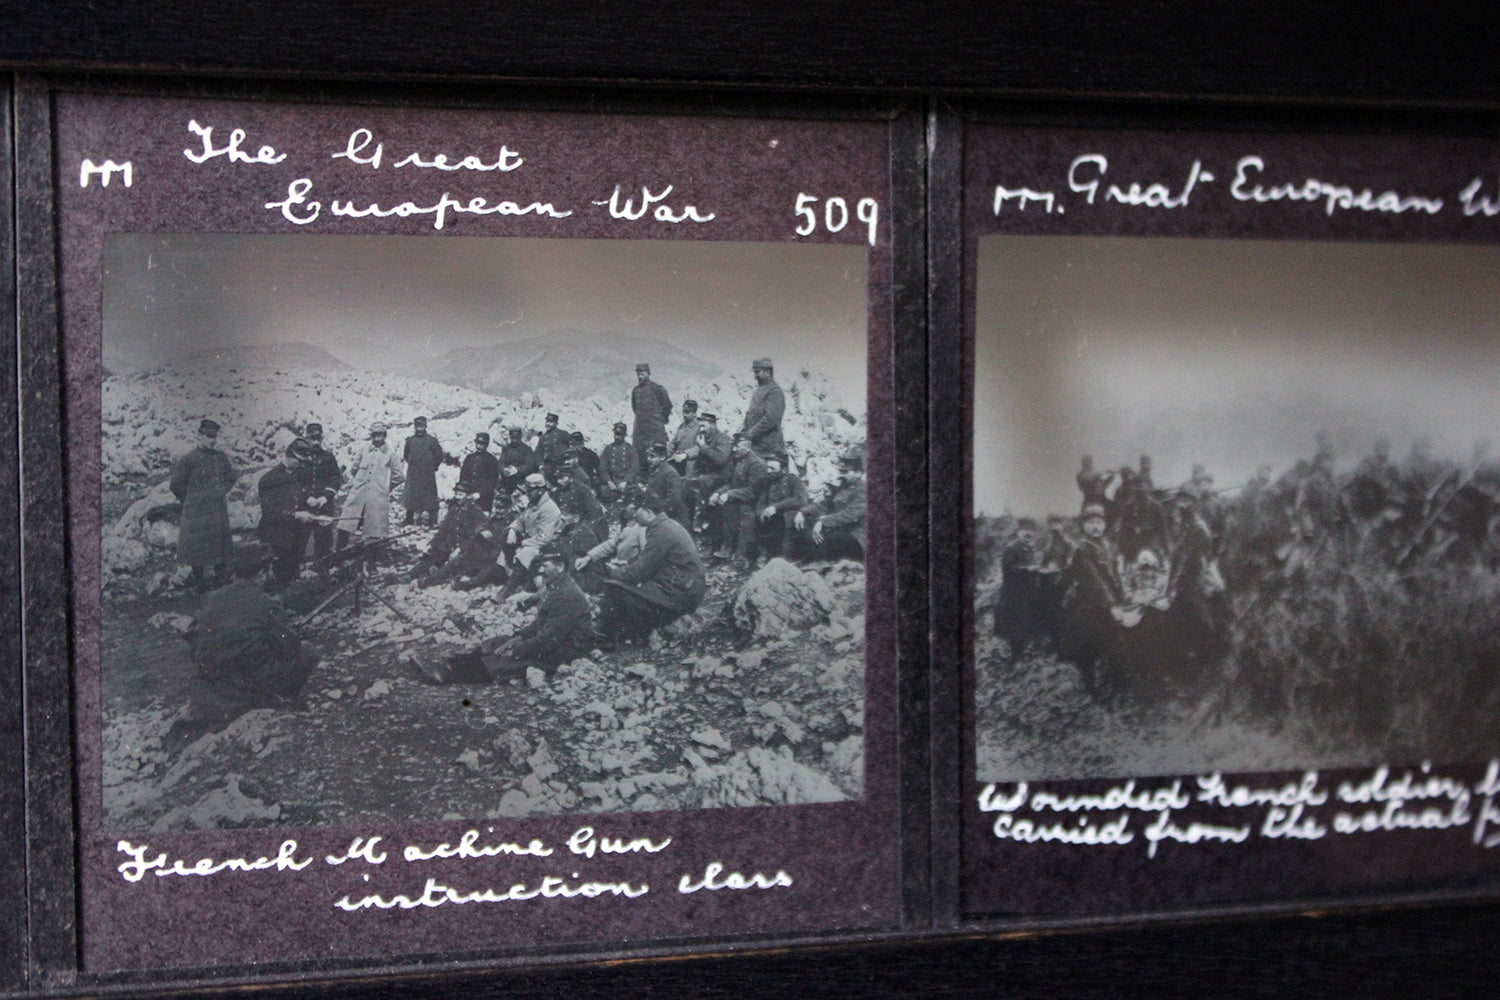 The Great
European War
509
French Machine Gun
instruction class
Great European
Wounded French soldier,
carried from the actual